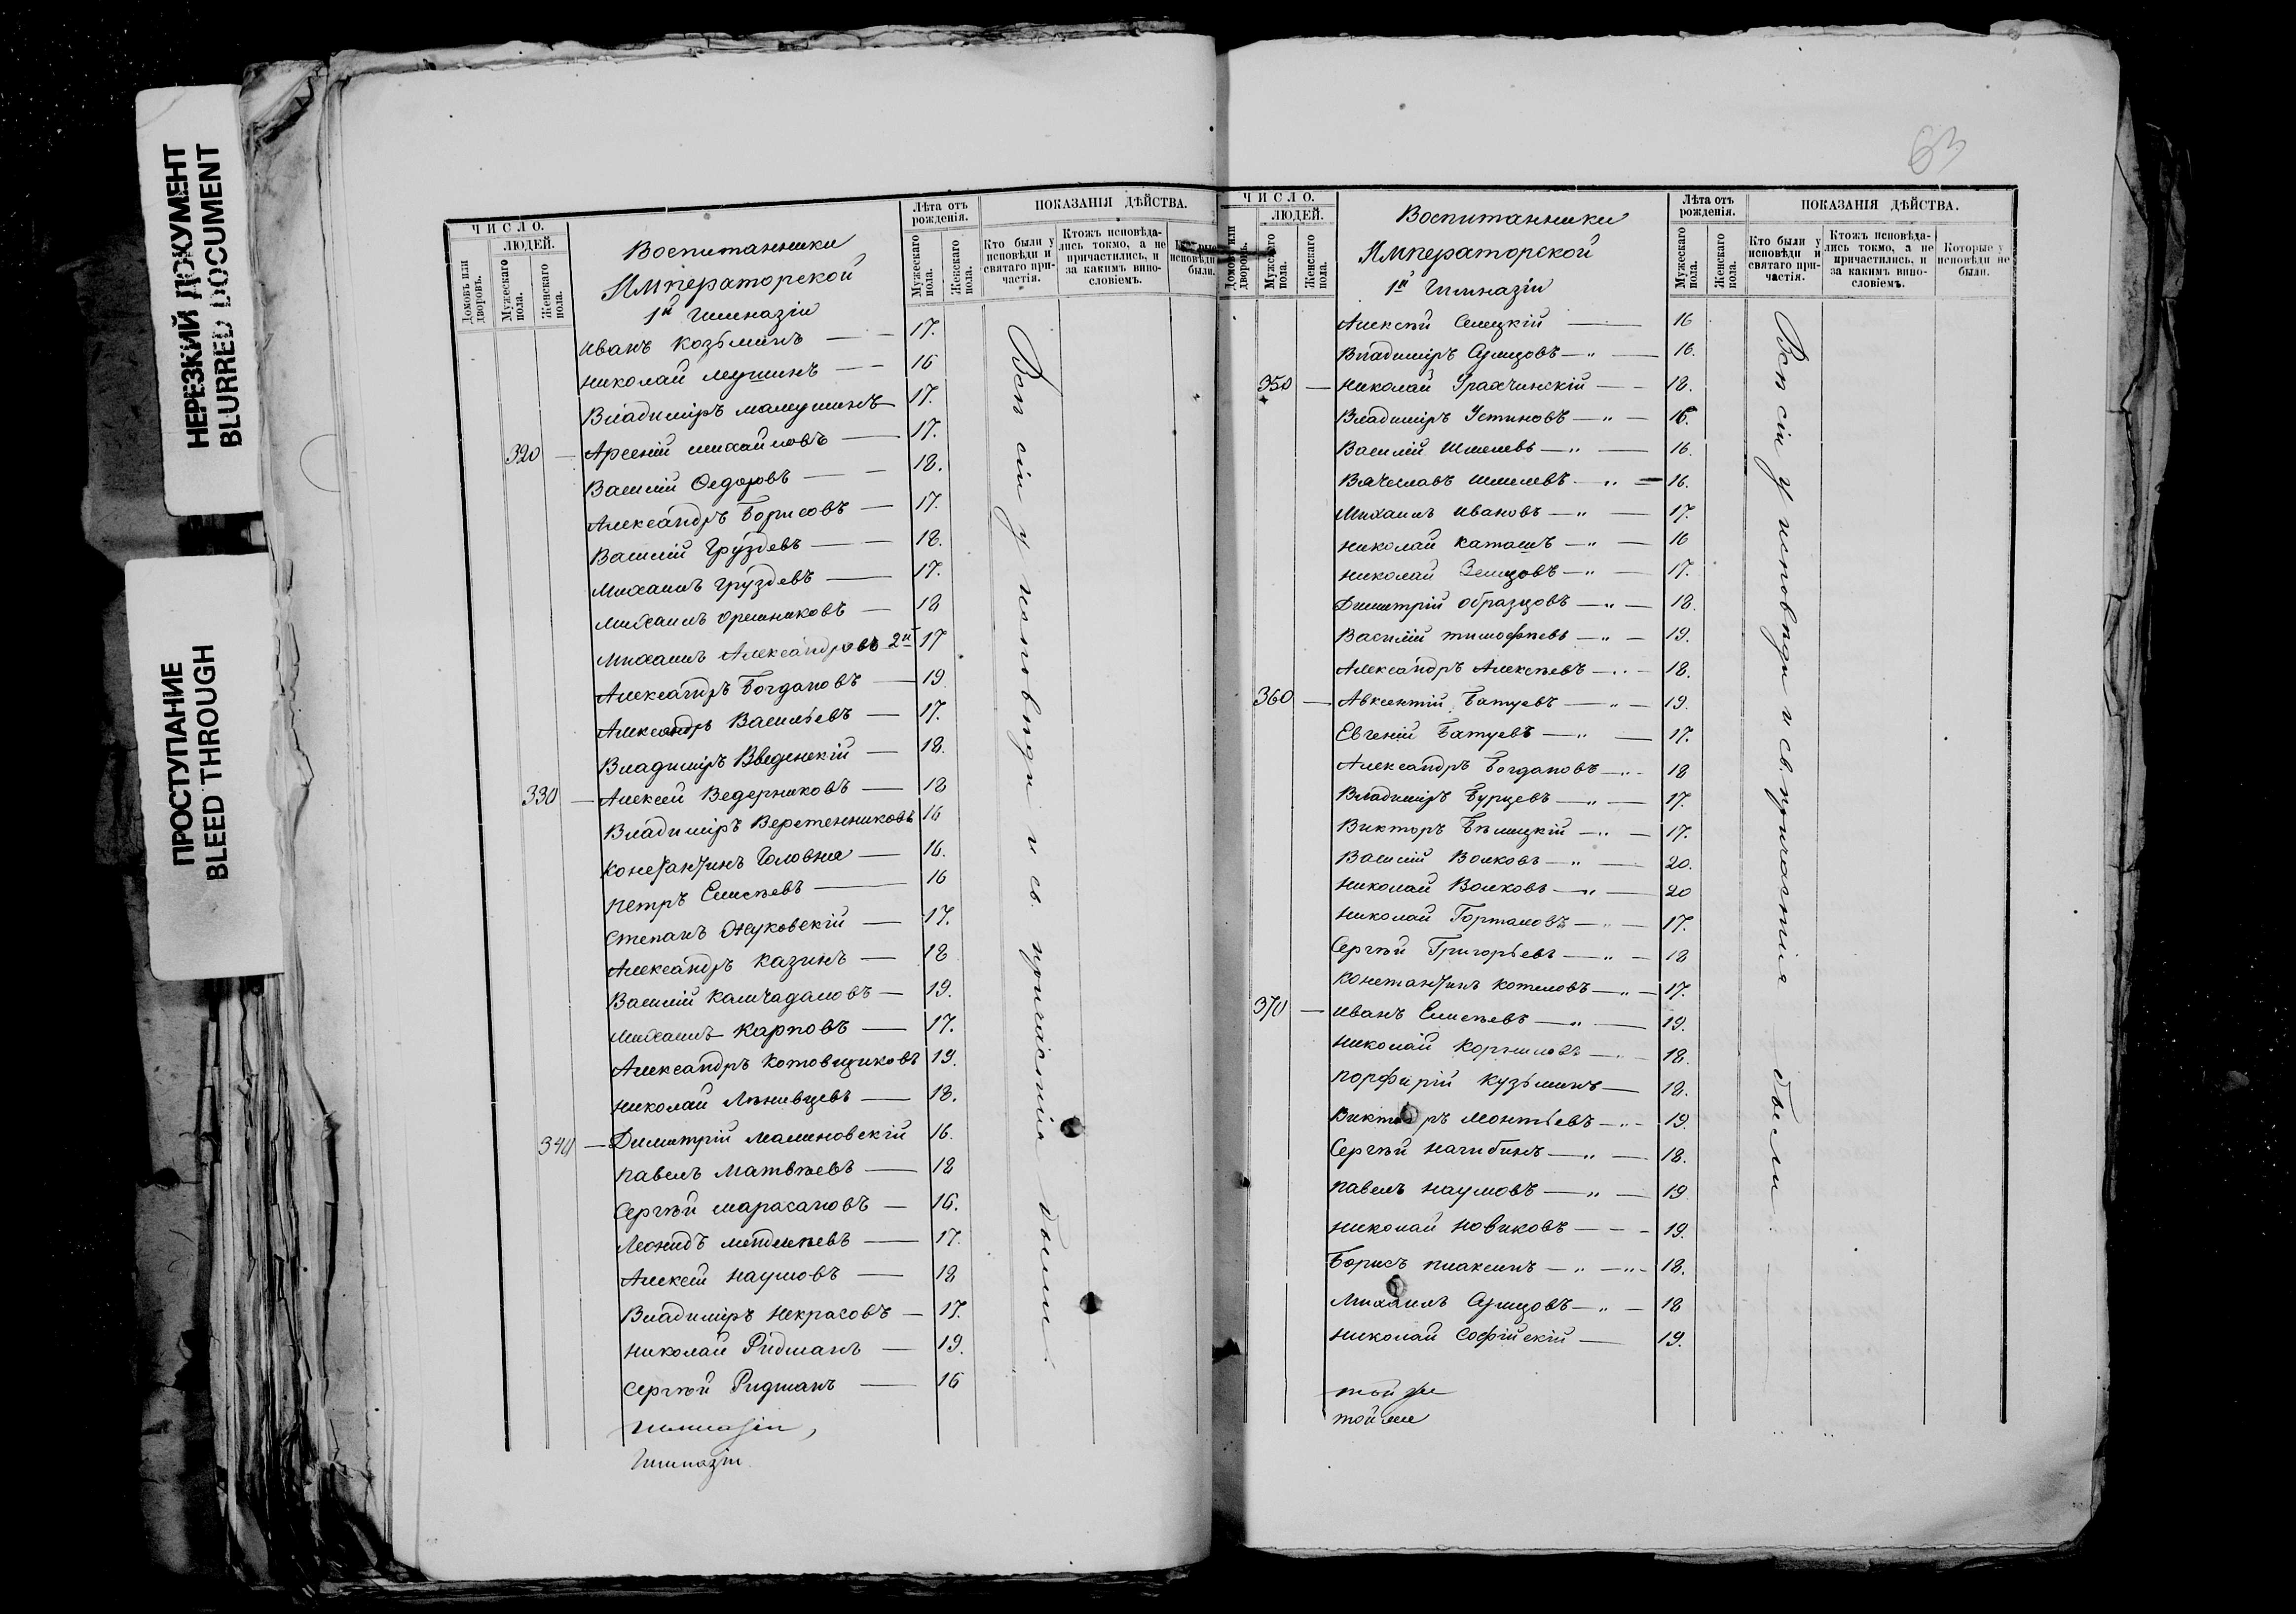 НЕРЕЗКИЙ ДОКУМЕНТ
BLURRED DOCUMENT
ПРОСТУПАНИЕ
BLEED THROUGH
ЧИСЛО.
ЛЮДЕЙ.
Домовъ или дворовъ.
Мужескаго пола.
Женскаго пола.
Воспитанники
Императорской
1й Гимназіи
Лѣта отъ рожденія.
Мужескаго пола.
Женскаго пола.
ПОКАЗАНІЯ ДѢЙСТВА.
Кто были у исповѣди и святаго причастія.
Ктожъ исповѣдались токмо, а не причастились, и за какимъ винословіемъ.
исповѣди были.
Иванъ Козьминъ — 17.
Николай Мушинъ — 16
Владиміръ Мамушинъ 17.
320 — Арсеній Михайловъ — 17.
Василій Ѳедоровъ — 18.
Александръ Борисовъ — 17.
Василій Груздевъ — 18.
Михаилъ Груздевъ — 17.
Михаилъ Орешниковъ — 18
Михаилъ Александровъ 2й 17
Александръ Богдановъ — 19
Александръ Васильевъ — 17.
Владиміръ Введенскій — 18.
330 — Алексей Ведерниковъ — 18
Владиміръ Веретенниковъ 16
Константинъ Головня — 16.
Петръ Елисѣевъ — 16
Степанъ Жуковскій — 17.
Александръ Казинъ — 18
Василій Камчадаловъ — 19.
Михаилъ Карповъ — 17.
Александръ Котовщиковъ 19.
Николай Лѣнивцевъ — 18.
340 — Димитрій Малиновскій 16.
Павелъ Матвѣевъ — 18
Сергѣй Марасановъ — 16.
Леонидъ Менделѣевъ — 17.
Алексей Наумовъ — 18
Владиміръ Некрасовъ — 17.
Николай Ридманъ — 19.
Сергѣй Ридманъ — 16
Гимназіи,
Гимназіи
Всѣ сіи у исповѣди и св. причастія были.
63
ЧИСЛО.
ЛЮДЕЙ.
Домовъ или дворовъ.
Мужскаго пола.
Женскаго пола.
Воспитанники
Императорской
1й Гимназіи
Лѣта отъ рожденія.
Мужескаго пола.
Женскаго пола.
ПОКАЗАНІЯ ДѢЙСТВА.
Кто были у исповѣди и святаго причастія.
Ктожъ исповѣдались токмо, а не причастились, и за какимъ винословіемъ.
Которые у исповѣди не были.
Алексѣй Селецкій — 16
Владиміръ —„— 16.
350 — Николай Трахчинскій — 18.
Владиміръ Устиновъ —„— 16.
Василій Шмелевъ —„— 16.
Вячеславъ Шмелевъ —„— 16.
Михаилъ Ивановъ —„— 17.
Николай —„— 16
Николай Земцовъ —„— 17.
Димитрій Образцовъ —„— 18.
Василій Тимофѣевъ —„— 19.
Александръ Алексѣевъ —„— 18.
360 — Авксентій Батуевъ —„— 19.
Евгеній Батуевъ —„— 17.
Александръ Богдановъ —„— 18
Владиміръ Бурцевъ —„— 17.
Викторъ Бѣлицкій —„— 17.
Василій Волковъ —„— 20.
Николай Волковъ —„— 20
Николай Горталовъ —„— 17.
Сергѣй Григорьевъ —„— 18
Константинъ Котеловъ —„— 17.
370 — Иванъ Елисѣевъ —„— 19.
Николай Корниловъ —„— 18.
Порфирій Кузьминъ — 18.
Викторъ Леонтьевъ —„— 19.
Сергѣй Нагибинъ —„— 18.
Павелъ Наумовъ —„— 19
Николай Новиковъ — 19.
Борисъ Плаксинъ —„— 18.
Михаилъ —„— 18
Николай Софійскій — 19.
той же
той же
Всѣ сіи у исповѣди и св. причастія были.